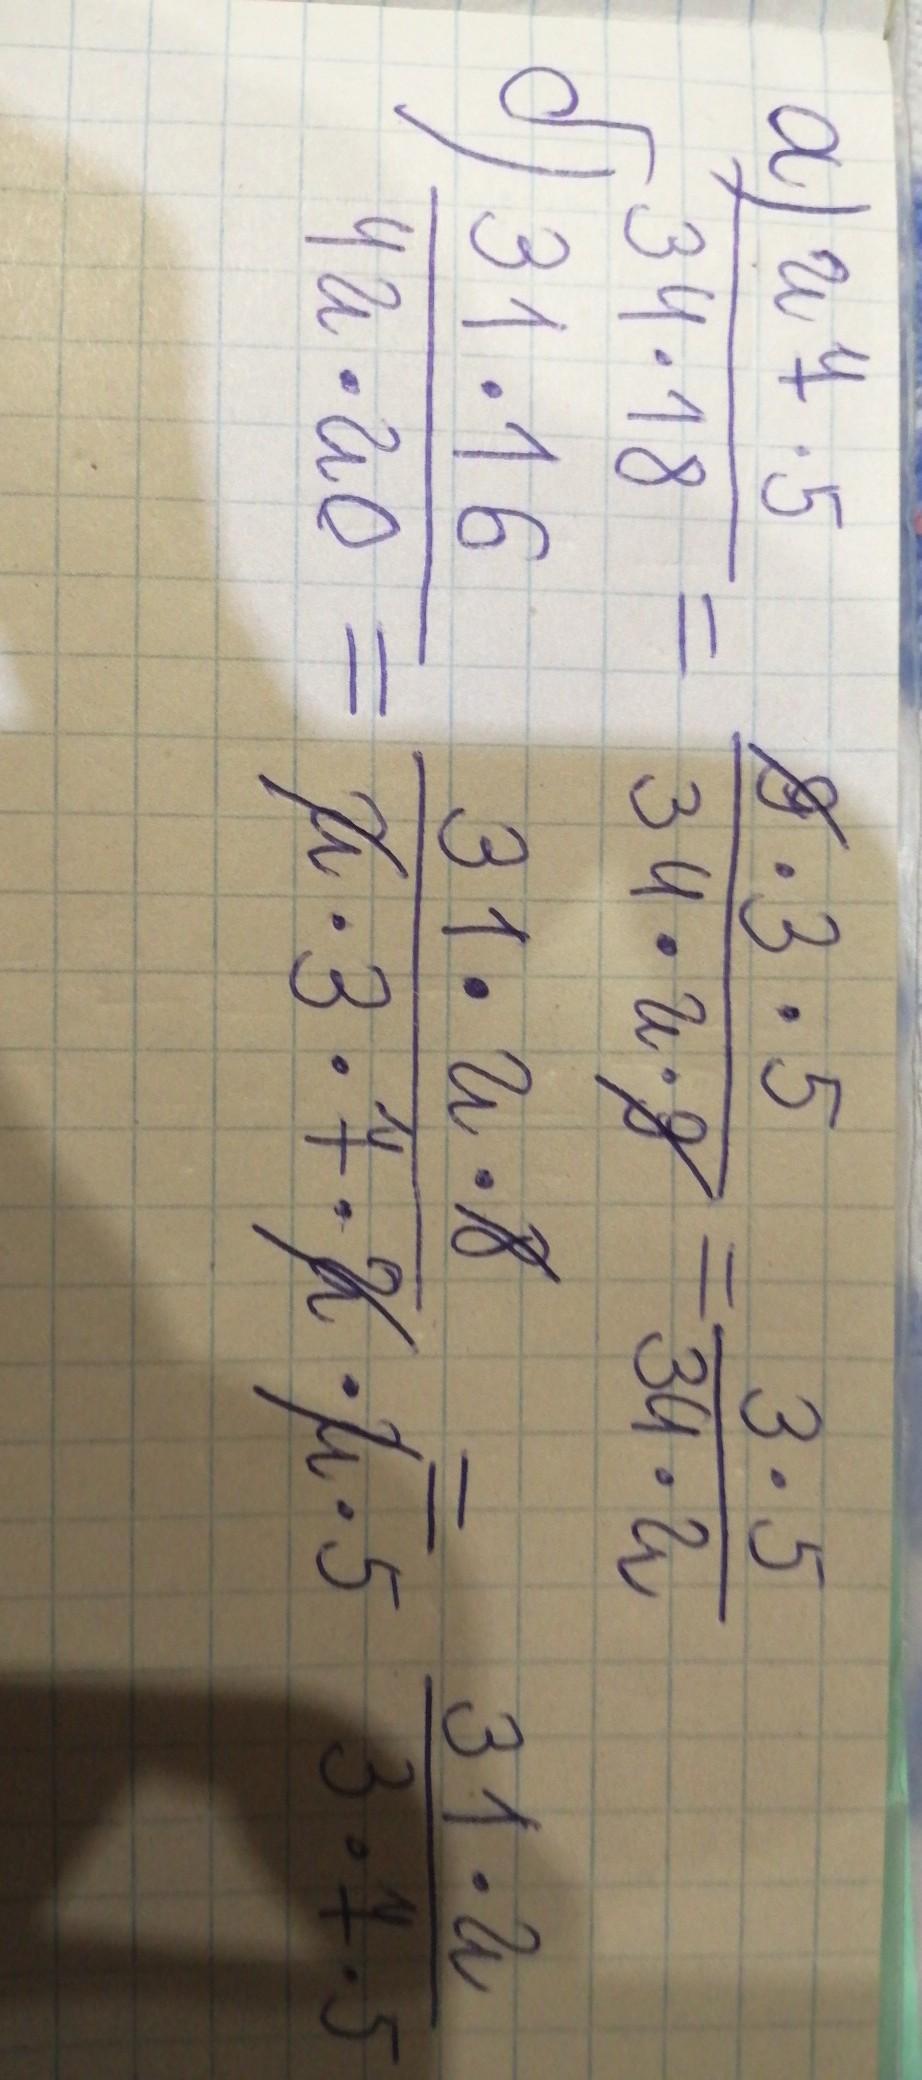 а) 27·5 / 34·18 = 9·3·5 / 34·2·9 = 3·5 / 34·2
б) 31·16 / 42·20 = 31·2·8 / 2·3·7·2·2·5 = 31·2 / 3·7·5